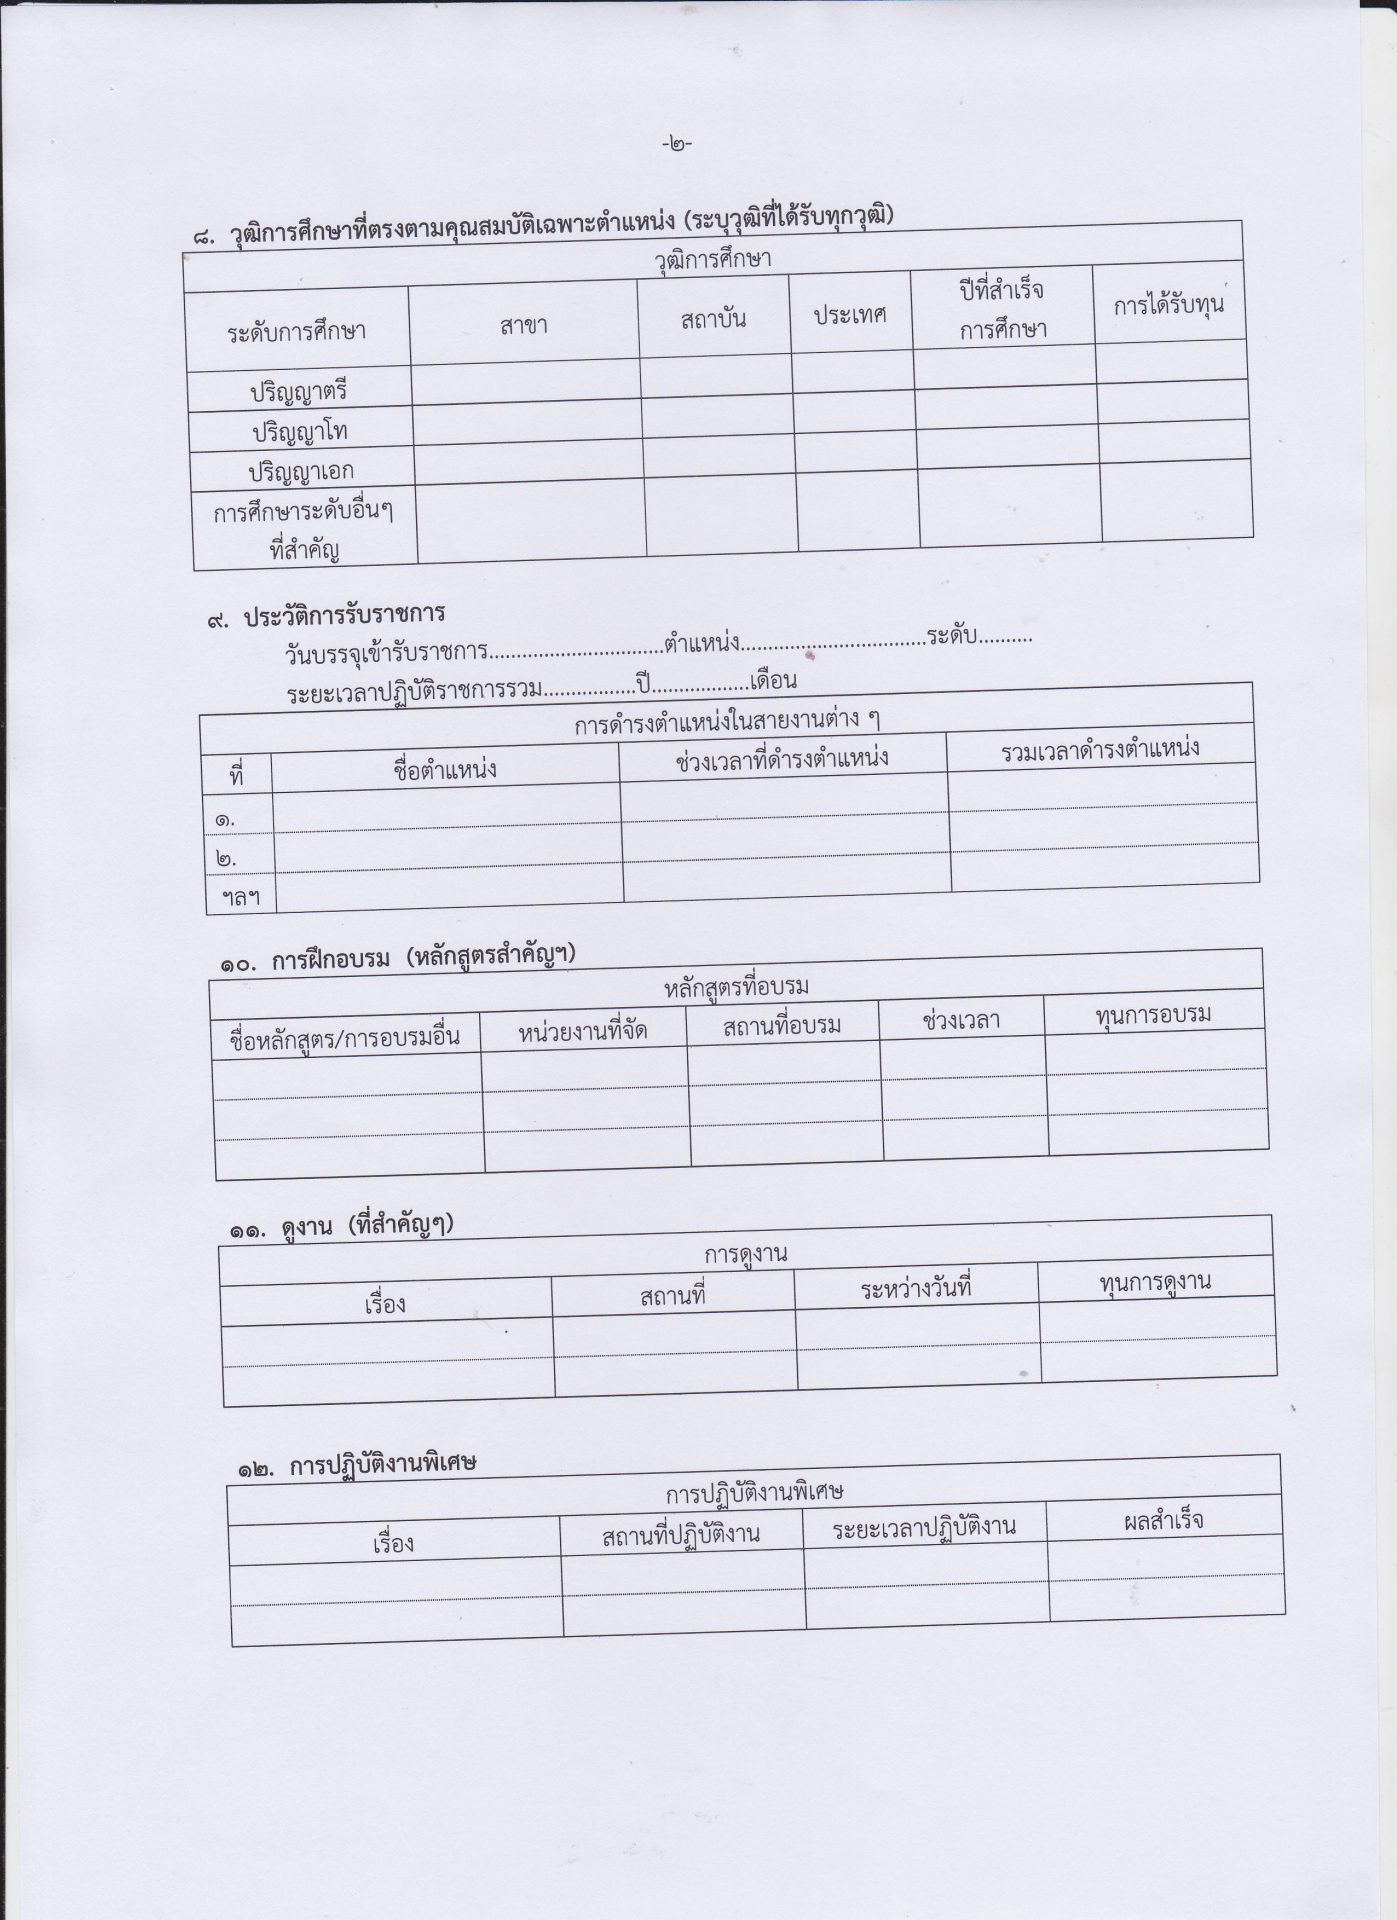 -๒-
๘. วุฒิการศึกษาที่ตรงตามคุณสมบัติเฉพาะตำแหน่ง (ระบุวุฒิที่ได้รับทุกวุฒิ)
วุฒิการศึกษา
ระดับการศึกษา สาขา สถาบัน ประเทศ ปีที่สำเร็จ การได้รับทุน
การศึกษา
ปริญญาตรี
ปริญญาโท
ปริญญาเอก
การศึกษาระดับอื่นๆ
ที่สำคัญ
๙. ประวัติการรับราชการ
วันบรรจุเข้ารับราชการ................................ตำแหน่ง..................................ระดับ..........
ระยะเวลาปฏิบัติราชการรวม.................ปี..................เดือน
การดำรงตำแหน่งในสายงานต่าง ๆ
ที่ ชื่อตำแหน่ง ช่วงเวลาที่ดำรงตำแหน่ง รวมเวลาดำรงตำแหน่ง
๑.
๒.
ฯลฯ
๑๐. การฝึกอบรม (หลักสูตรสำคัญฯ)
หลักสูตรที่อบรม
ชื่อหลักสูตร/การอบรมอื่น หน่วยงานที่จัด สถานที่อบรม ช่วงเวลา ทุนการอบรม
๑๑. ดูงาน (ที่สำคัญๆ)
การดูงาน
เรื่อง สถานที่ ระหว่างวันที่ ทุนการดูงาน
๑๒. การปฏิบัติงานพิเศษ
การปฏิบัติงานพิเศษ
เรื่อง สถานที่ปฏิบัติงาน ระยะเวลาปฏิบัติงาน ผลสำเร็จ